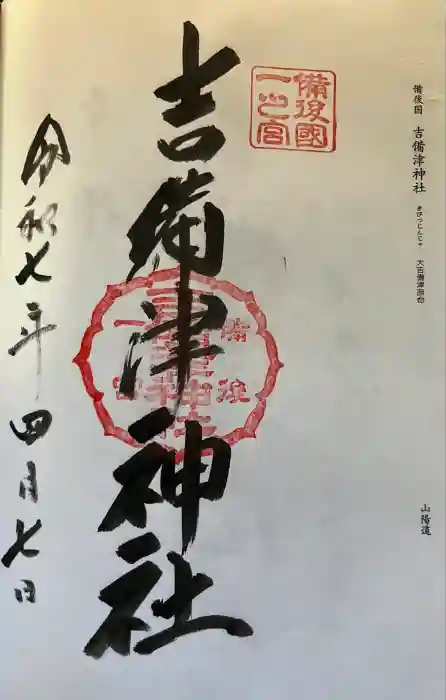 備後国 吉備津神社 きびつじんじゃ 大吉備津彦命
山陽道
備後國
一之宮
吉備津神社
備後
一宮
令和七年四月七日